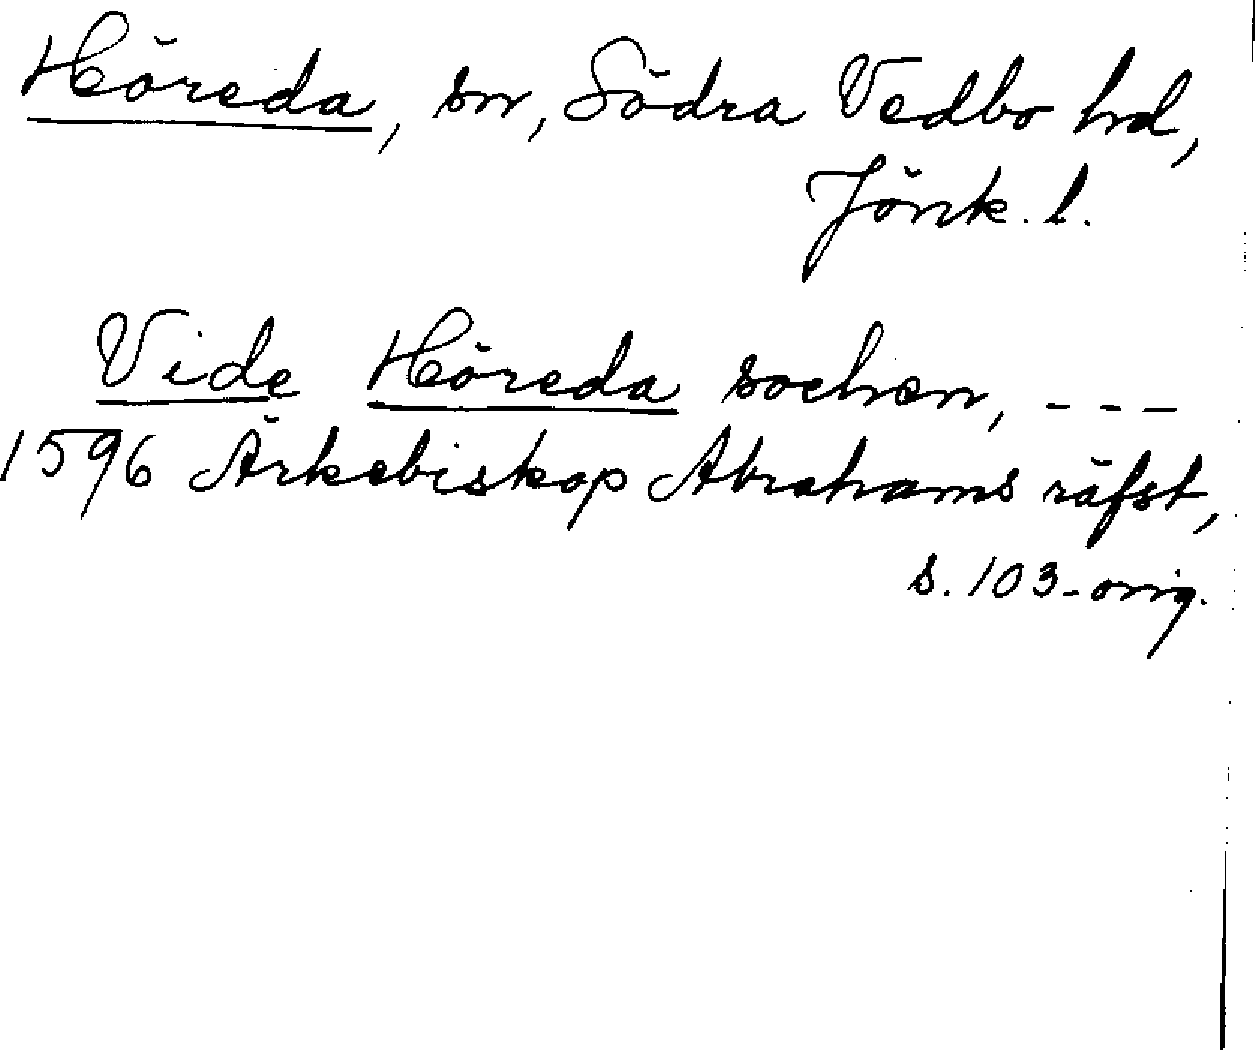 Höreda, sn, Södra Vedbo hd,
Jönk. l.
Vide Höreda sochen, ---
1596 Ärkebiskop Abrahams räfst,
s. 103 - orig.